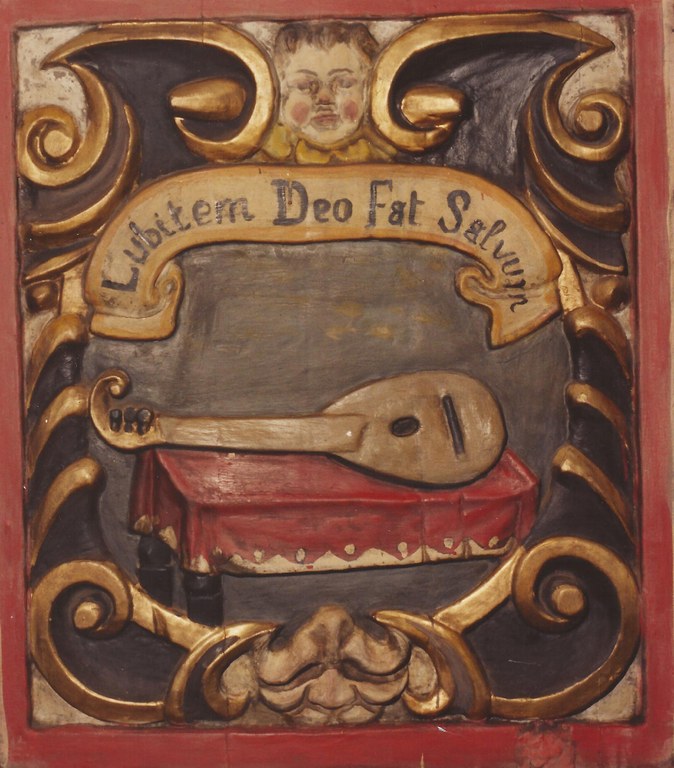 Lubitem Deo Fat Salvum